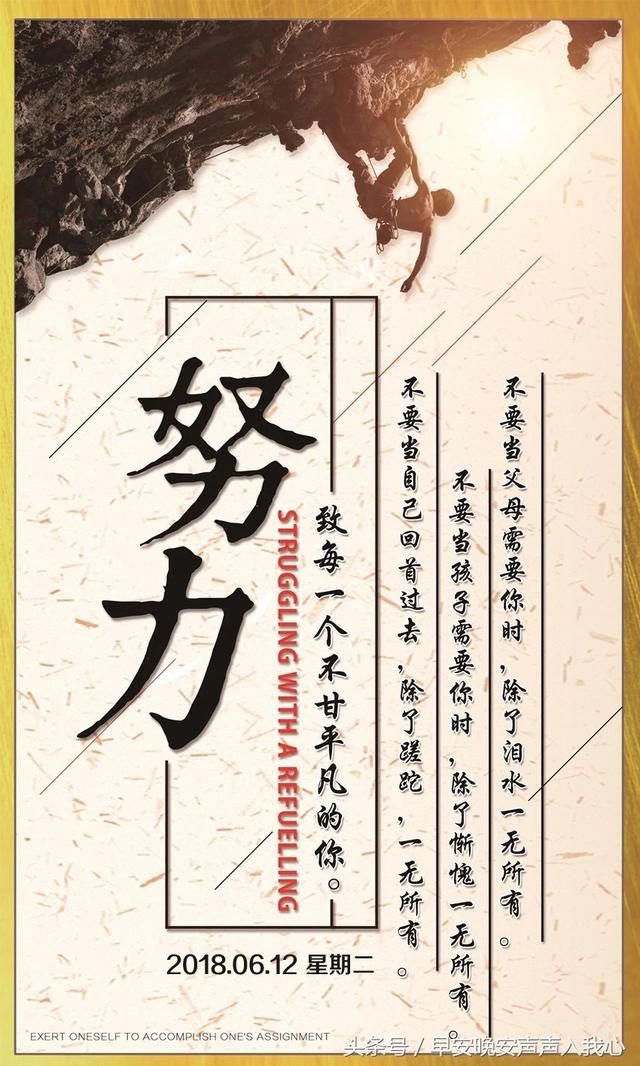 努力
STRUGGLING WITH A REFUELLING
致每一个不甘平凡的你。
不要当父母需要你时，除了泪水一无所有。
不要当孩子需要你时，除了惭愧一无所有。
不要当自己回首过去，除了蹉跎，一无所有。
2018.06.12 星期二
EXERT ONESELF TO ACCOMPLISH ONE'S ASSIGNMENT
头条号 / 早安晚安声声入我心